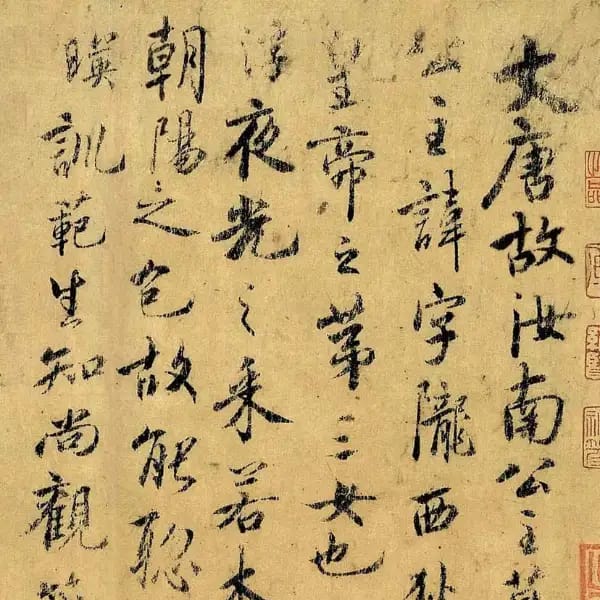 大唐故汝南公主墓
公主諱字隴西狄
皇帝之第三女也
浮夜光之采若木
朝陽之色故能聡
暎訓範生知尚觀箴